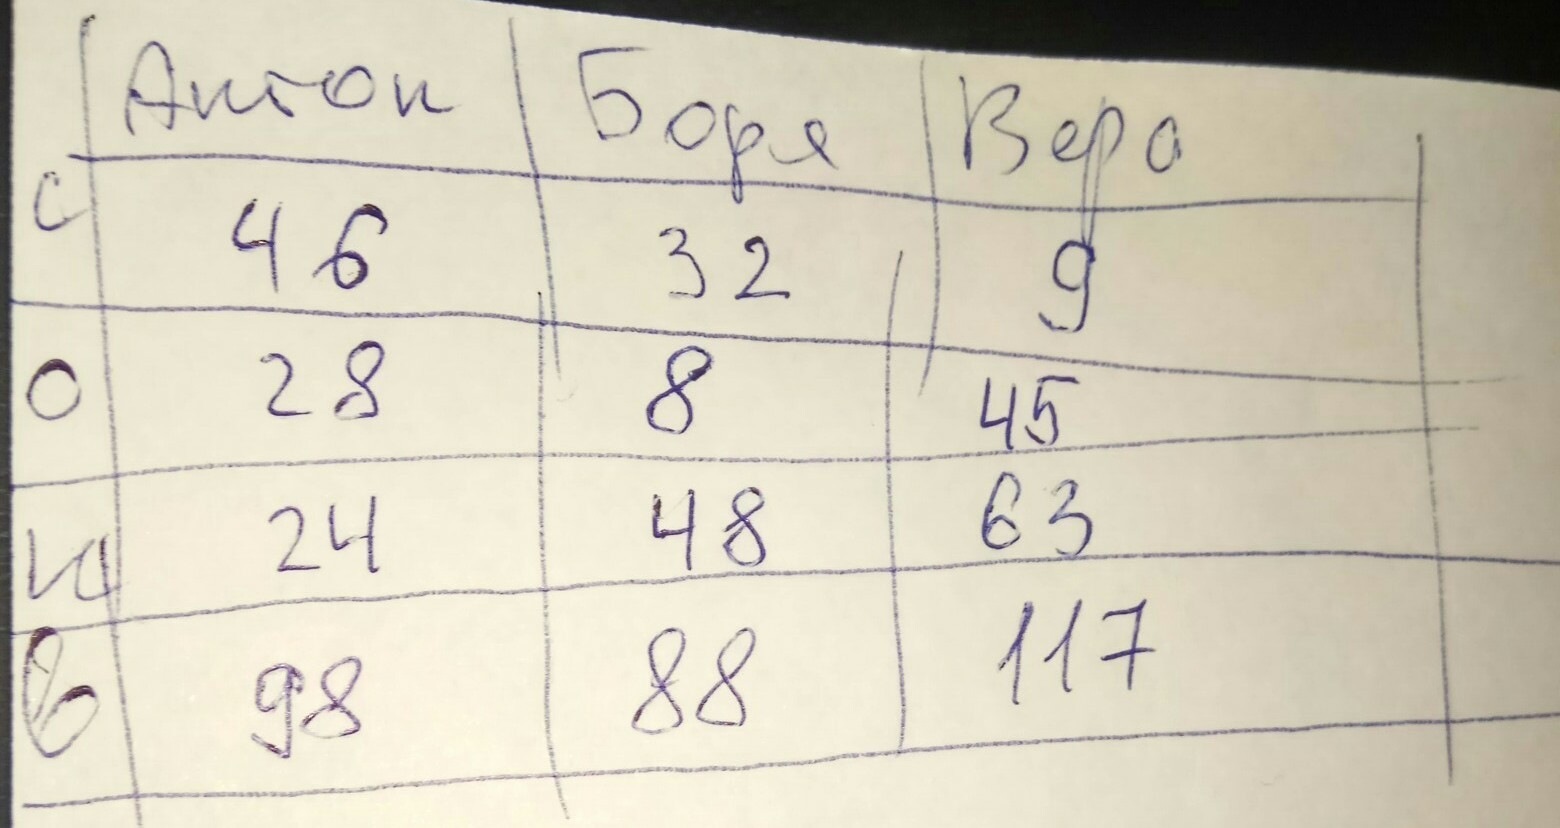 Антон Боря Вера
С 46 32 9
О 28 8 45
И 24 48 63
В 98 88 117